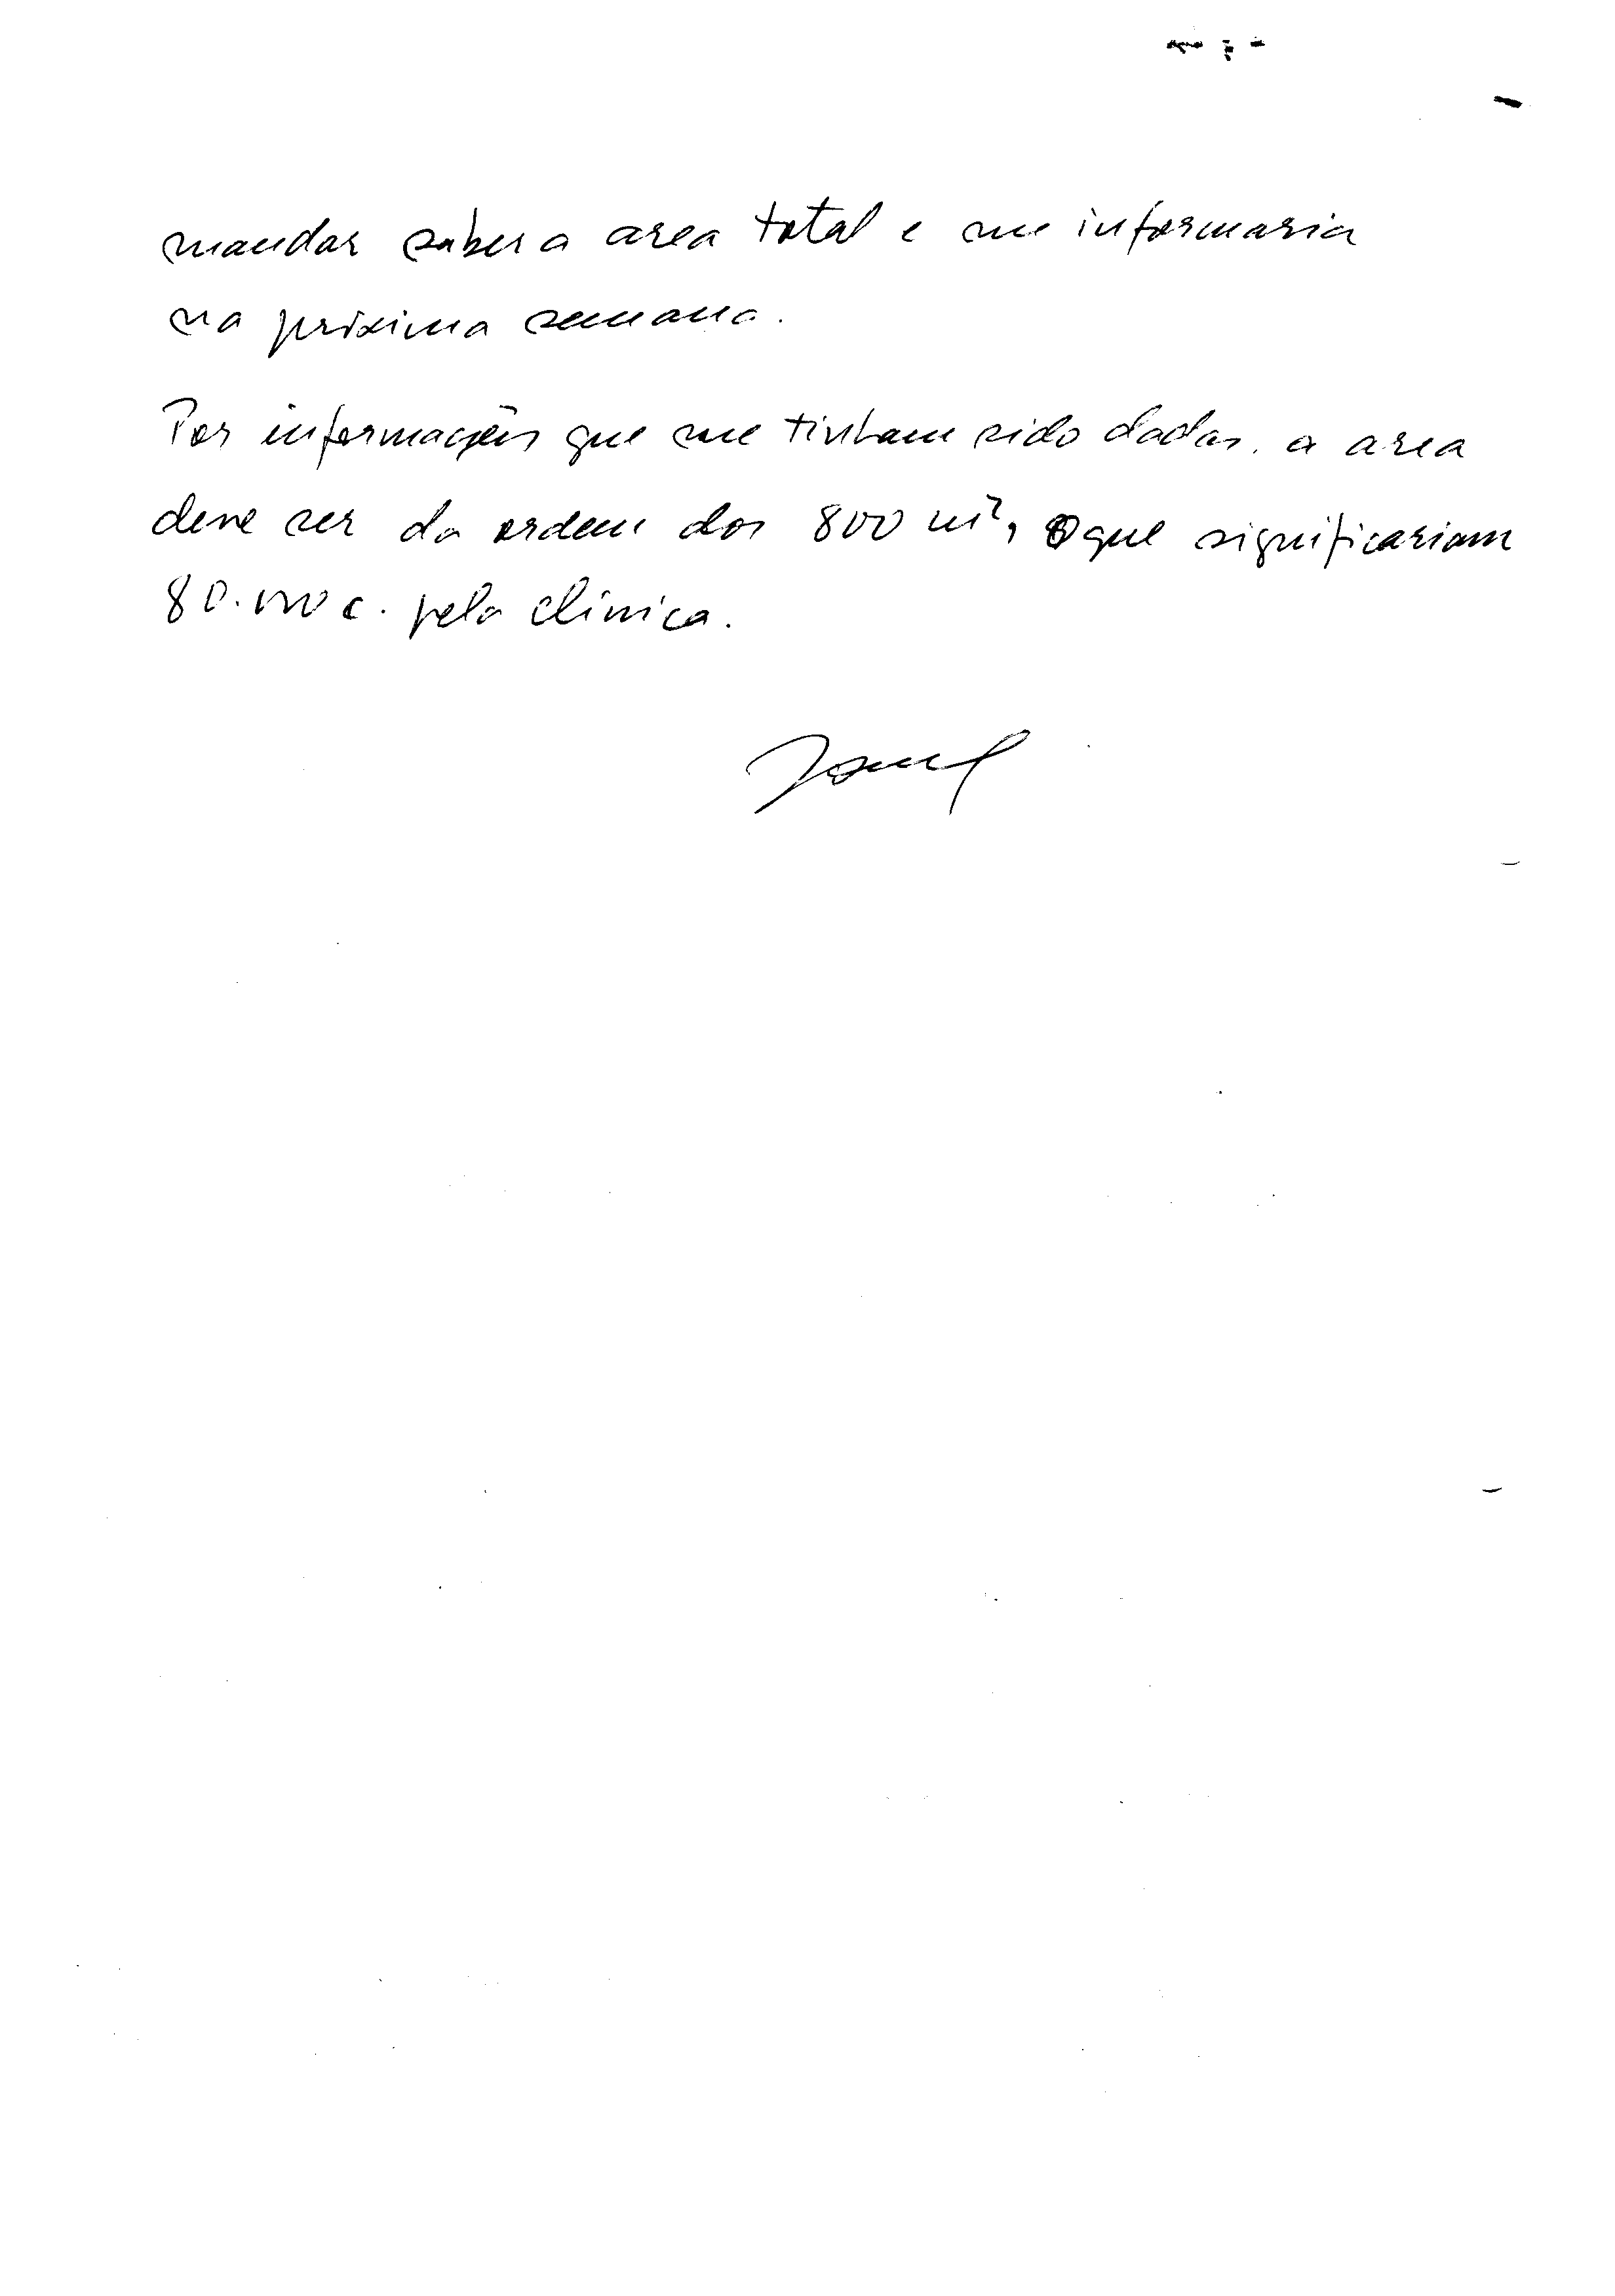 mandar saber a area total e me informaria
na próxima semana.
Por informações que me tinham sido dadas, a area
deve ser da ordem dos 800 m², o que significariam
80.000 c. pela clinica.